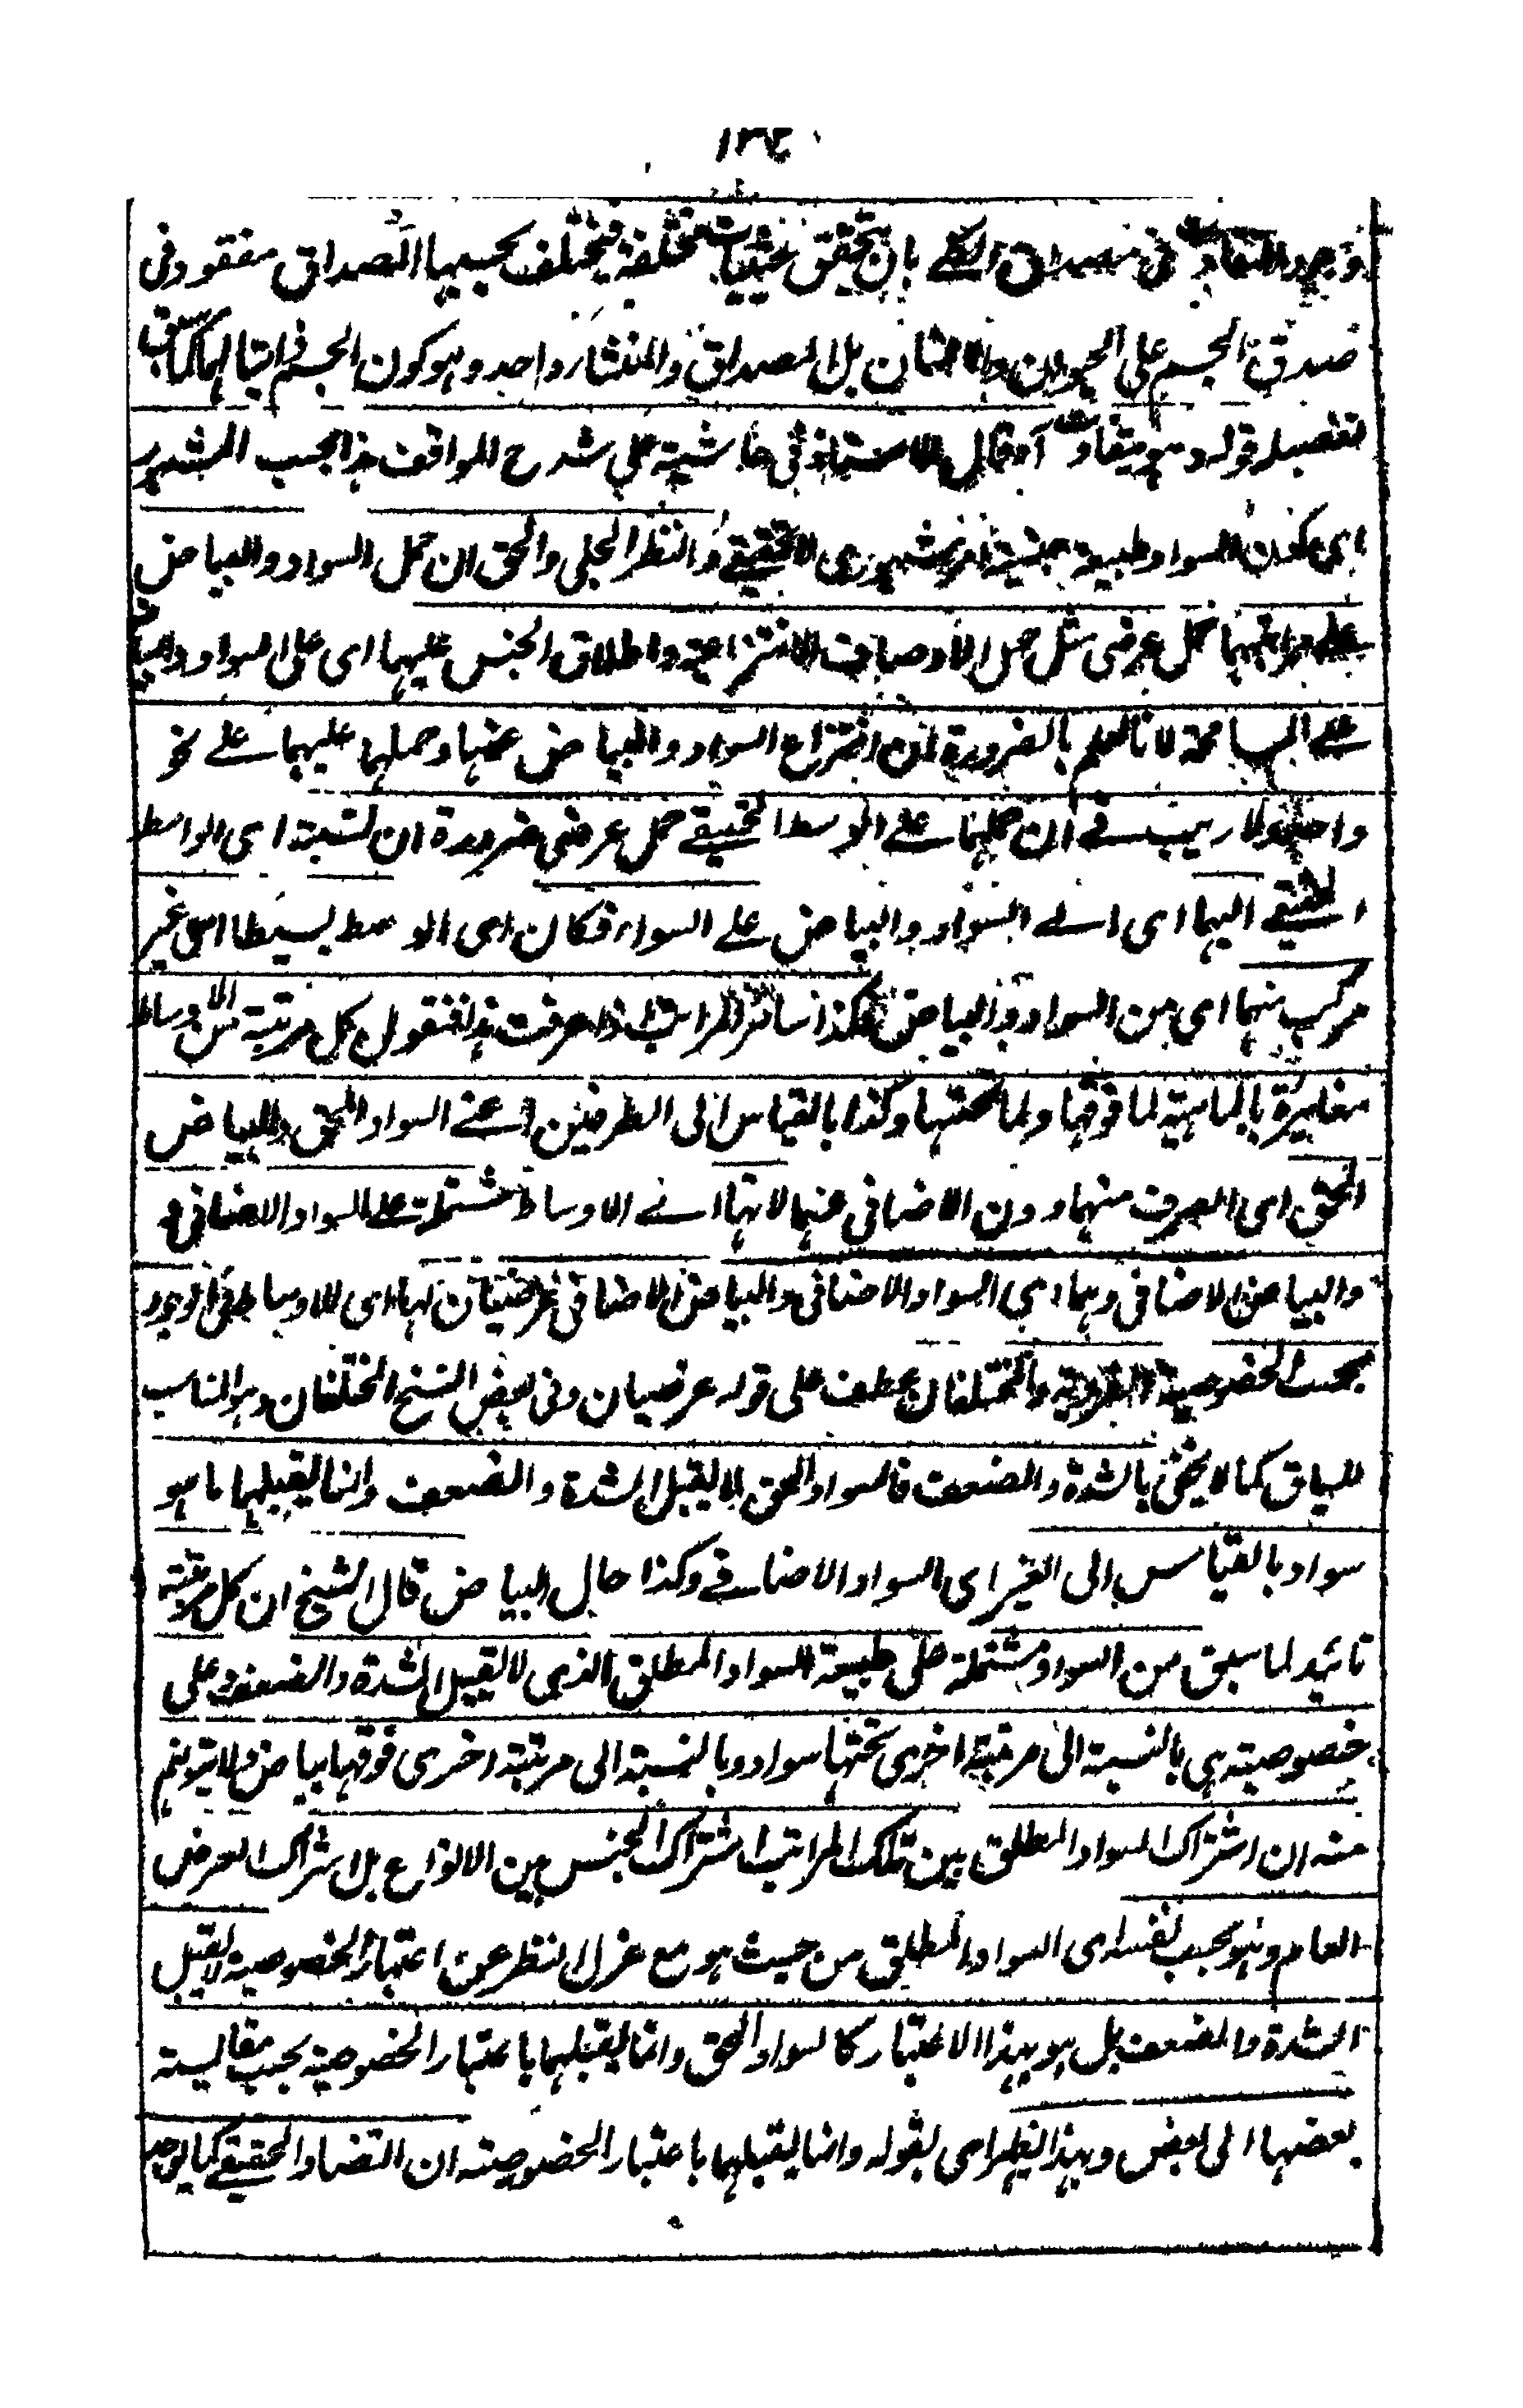 ١٣٤
وجود التفاوت فى مصداق الكلى بان يتحقق حيثيات مختلفة فيختلف بحسبها المصداق مفقود فى
صدق الجسم على الحيوان والانسان بل المصداق والمنشأ واحد وهو كون الجسم ذاتيا لهما كما سبق
تفصيله قوله وهو يتفاوت آه قال الاستاذ فى حاشيته على شرح المواقف هذا بحسب المشهور
اى كون السواد طبيعة جنسية امر مشهورى لا تحقيقى والنظر الجلى والحق ان حمل السواد والبياض
على مراتبهما حمل عرضى مثل حمل الاوصاف الانتزاعية واطلاق الجنس عليهما اى على السواد والبياض
على المسامحة لانا نعلم بالضرورة ان انتزاع السواد والبياض عنها وحملهما عليهما على نحو
واحد ولا ريب فى ان حملهما على الوسط الحقيقى حمل عرضى ضرورة ان نسبته اى الواسط
الحقيقى اليهما اى الى السواد والبياض على السواء فكان اى الوسط بسيطا اى غير
مركب منهما اى من السواد والبياض هكذا سائر المراتب اذا عرفت هذا فنقول كل مرتبة من الاوساط
مغايرة بالماهية لما فوقها ولما تحتها وكذا بالقياس الى الطرفين اعنى السواد الحق والبياض
الحق اى الصرف منهما دون الاضافى عنهما لانها اى الاوساط مشتملة على السواد الاضافى و
والبياض الاضافى وهما اى السواد الاضافى والبياض الاضافى عرضيان لها اى للاوساط فى الوجود
بحسب الخصوصية الفردية والمختلفان عطف على قوله عرضيان وفى بعض النسخ المختلفان وهو المناسب
للسياق كما لا يخفى بالشدة والضعف فالسواد الحق لا يقبل الشدة والضعف وانما يقبلهما ما هو
سواد بالقياس الى الغير اى السواد الاضافى وكذا حال البياض قال الشيخ ان كل مرتبة
تائيد لما سبق من السواد مشتملة على طبيعة السواد المطلق الذى لا يقبل الشدة والضعف وعلى
خصوصيته هى بالنسبة الى مرتبة اخرى تحتها سواد وبالنسبة الى مرتبة اخرى فوقها بياض ولا يتوهم
منه ان اشتراك السواد المطلق بين تلك المراتب اشتراك الجنس بين الانواع بل اشتراك العرض
العام وهو بحسب نفسه اى السواد المطلق من حيث هو مع عزل النظر عن اعتبار الخصوصية لا يقبل
الشدة والضعف بل هو بهذا الاعتبار كالسواد الحق وانما يقبلهما باعتبار الخصوصية بحسب مقايسة
بعضها الى بعض وبهذا يظهر اى بقوله وانما يقبلهما باعتبار الخصوصية ان التضاد الحقيقى كما يوجد